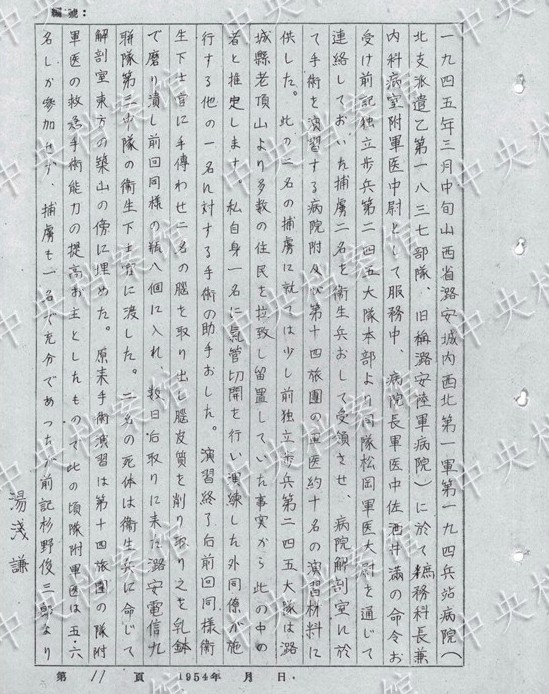 編號:
一九四五年三月中旬山西省潞安城内西北第一軍第一九四兵站病院(
北支派遣乙第一八三七部隊、旧稱潞安陸軍病院)に於て務科長兼
内科病室附軍医中尉として服務中、病院長軍医中佐酒井満の命令お
受け前記独立歩兵第二四五大隊本部より同隊松岡軍医大尉を通じて
連絡しておいた捕虜二名を衛生兵おして受領させ、病院解剖室に於
て手術を演習する病院附及び第十四旅團の軍医約十名の演習材料に
供した。此の二名の捕虜に就ては少し前独立歩兵第二四五大隊は潞
城縣老頂山より多数の住民を拉致し留置していた事実から此の中の
者と推定します。私自身一名に気管切開を行い演練した外同僚が施
行する他の一名に対する手術の助手おした。演習終了后前回同様衛
生下士官に手傳わせ二名の脳を取り出し脳皮質を削り取り之を乳鉢
で磨り潰し前回同様の瓶八個に入れ、数日后取りに来た潞安電信九
聯隊第三中隊の衛生下士官に渡した。二名の死体は衛生兵に命じて
解剖室東方の築山の傍に埋めた。原来手術演習は第十四旅團の隊附
軍医の救急手術能力の提高お主としたもので此の頃隊附軍医は五・六
名しか参加せず、捕虜も一名で充分であつたが前記杉野俊三郎なり
湯浅謙
第 11 頁 1954年 月 日.
中央档案馆